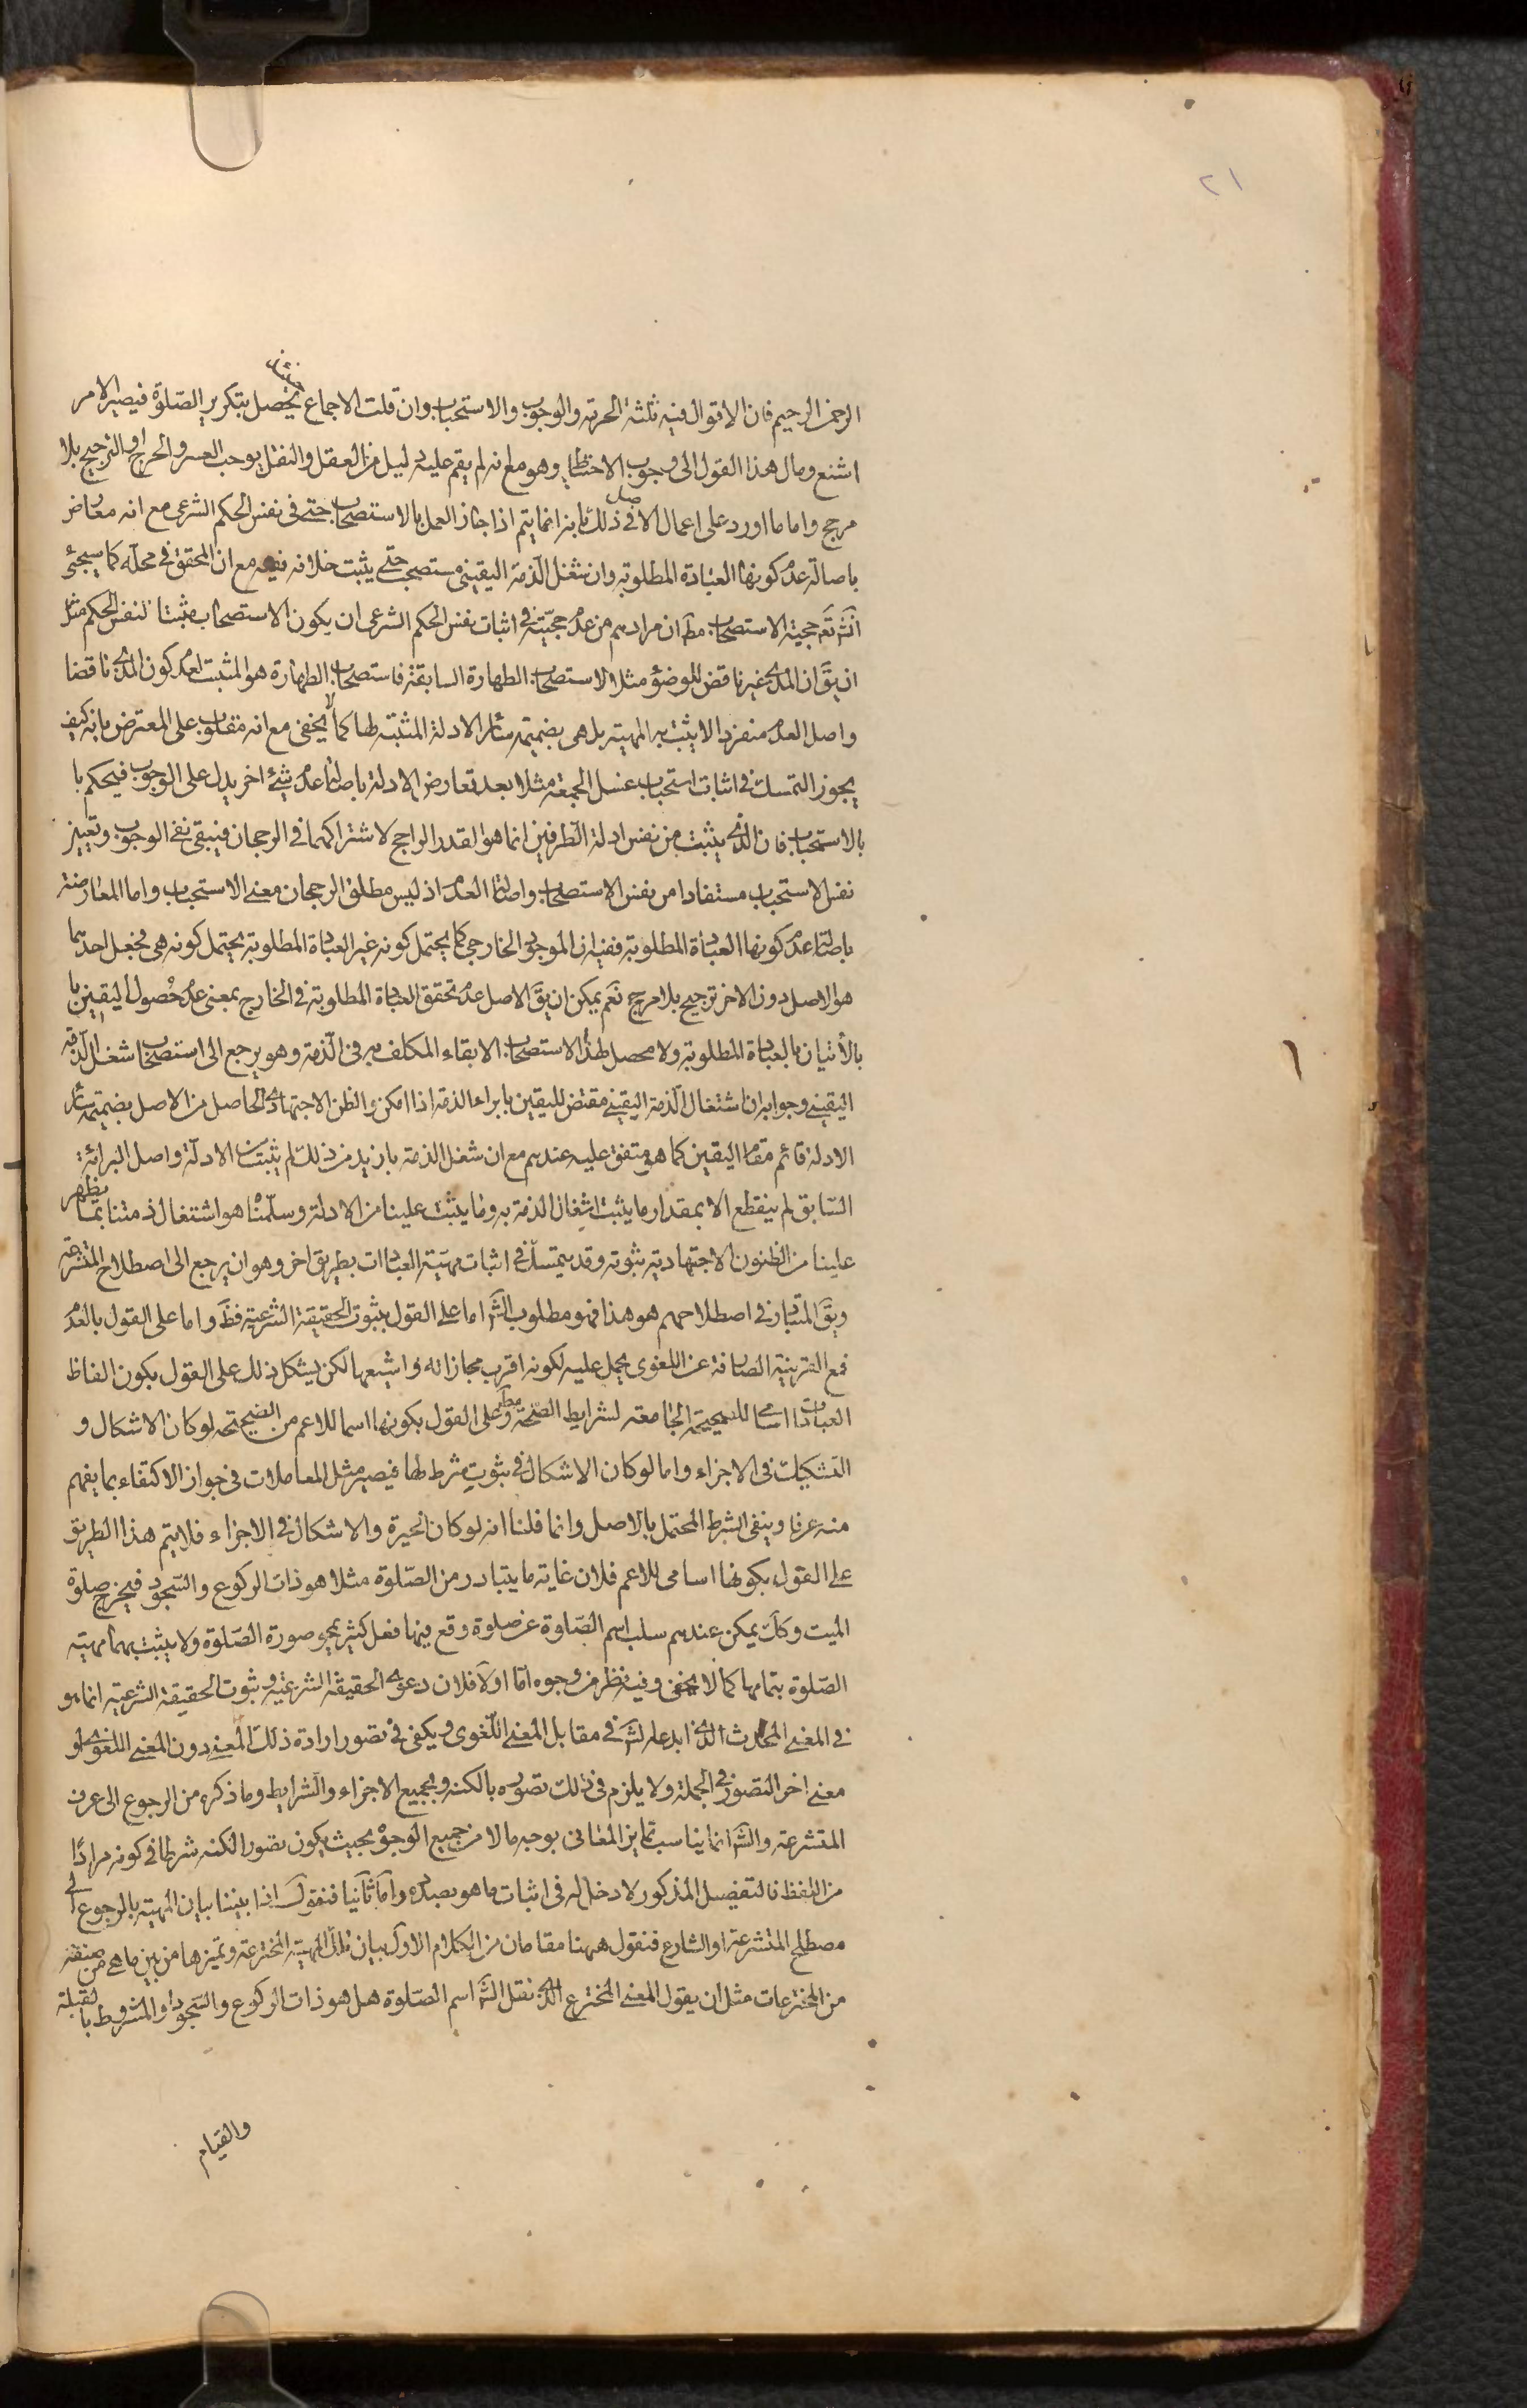 ٢١
الرحمن الرحيم فان الاقوال فيه ثلثة الحرمة والوجوب والاستحباب وان قلت الاجماع يحصل بتكرير الصّلوة فيصير الامر
اشنع ومال هذا القول الى وجوب الاحتياط وهو مع انه لم يقم عليه دليل من العقل والنقل يوجب العسر والحرج او الترجيح بلا
مرجح واما ما اورد على اعمال الاصل فى ذلك بانه انما يتم اذا جاز العمل بالاستصحاب حتى فى نفس الحكم الشرعى مع انه معارض
باصالة عدم كونها العبادة المطلوبة وان شغل الذمة اليقينى مستصحب حتى يثبت خلافه ففيه مع ان المحقق فى محله كما سيجئ
انش تع حجية الاستصحاب مط ان مرادهم من عدم حجيته فى اثبات نفس الحكم الشرعى ان يكون الاستصحاب مثبتا لنفس الحكم مثل
ان يق ان المذى غير ناقض للوضوء مثلا لاستصحاب الطهارة السابقة فاستصحاب الطهارة هو المثبت لعدم كون المذى ناقضا
واصل العدم منفردا لا يثبت به المهية بل هى بضميمة سائر الادلة المثبتة لها كما لا يخفى مع انه مقلوب على المعترض بانه كيف
يجوز التمسك فى اثبات استحباب غسل الجمعة مثلا بعد تعارض الادلة باصالة عدم شئ اخر يدل على الوجوب فيحكم با
بالاستحباب فان الذى يثبت من نفس ادلة الطرفين انما هو القدر الراجح لاشتراكهما فى الرجحان فيبقى نفى الوجوب وتعيين
نفس الاستحباب مستفادا من نفس الاستصحاب واصالة العدم اذ ليس مطلق الرجحان معنى الاستحباب واما المعارضة
باصالة عدم كونها العبادة المطلوبة ففيه ان الموجود الخارجى كما يحتمل كونه غير العبادة المطلوبة يحتمل كونه هى فجعل احدهما
هو الاصل دون الاخر ترجيح بلا مرجح نعم يمكن ان يق الاصل عدم تحقق العبادة المطلوبة فى الخارج بمعنى عدم حصول اليقين با
بالأتيان بالعبادة المطلوبة ولا محصل لهذا الاستصحاب الا بقاء المكلف به فى الذمة وهو يرجع الى استصحاب شغل الذمة
اليقينى وجوابه ان اشتغال الذمة اليقينى مقتض لليقين بابراء الذمة اذا امكن والظن الاجتهادى الحاصل من الاصل بضميمة سائر
الادلة قائم مقام اليقين كما هو متفق عليه عندهم مع ان شغل الذمة بازيد من ذلك لم يثبت من الادلة واصل البرائة
السّابق لم ينقطع الا بمقدار ما يثبت اشغال الذمة به وما يثبت علينا من الادلة وسلّمناه هو اشتغال ذمتنا بما يظهر
علينا من الظنون الاجتهادية ثبوته وقد يتمسك فى اثبات مهية العبادات بطريق اخر وهو ان يرجع الى اصطلاح المتشرعة
ويق المتبادر فى اصطلاحهم هو هذا فهو مطلوب الش اما على القول بثبوت الحقيقة الشرعية فظ واما على القول بالعدم
فمع القرينة الصارفة عن اللغوى يحمل عليه لكونه اقرب مجازاته واشيعها لكن يشكل ذلك على القول بكون الفاظ
العبادات اسامى للصحيحة الجامعة لشرايط الصّحة مط وعلى القول بكونها اسما للاعم من الصحيحة لو كان الاشكال و
التشكيك فى الاجزاء واما لو كان الاشكال فى ثبوت شرط لها فيصير مثل المعاملات فى جواز الاكتفاء بما يفهم
منه عرفا وينفى الشرط المحتمل بالاصل وانما قلنا انه لو كان الحيرة والاشكال فى الاجزاء فلا يتم هذا الطريق
على القول بكونها اسامى للاعم فلان غاية ما يتبادر من الصّلوة مثلا هو ذات الركوع والسّجود فيخرج صلوة
الميت وكك يمكن عندهم سلب اسم الصّلوة عن صلوة وقع فيها فعل كثير يمحو صورة الصّلوة ولا يثبت بهما مهية
الصّلوة بتمامها كما لا يخفى وفيه نظر من وجوه امّا اولا فلان دعوى الحقيقة الشرعية وثبوت الحقيقة الشرعية انما هو
فى المعنى المحدث الذى ابدعه الش فى مقابل المعنى اللغوى ويكفى فى تصور ارادة ذلك المعنى دون المعنى اللغوى او
معنى اخر التصور فى الجملة ولا يلزم فى ذلك تصوره بالكنه وبجميع الاجزاء والشرايط وما ذكره من الرجوع الى عرف
المتشرعة والش انما يناسب تمايز المعانى بوجه ما لا من جميع الوجوه بحيث يكون تصور الكنه شرطا فى كونه مرادًا
من اللفظ فالتفصيل المذكور لا دخل له فى اثبات ما هو بصدده واما ثانيا فنقول اذا بيننا بيان المهية بالرجوع الى
مصطلح المتشرعة او الشارع فنقول ههنا مقامان من الكلام الاول بيان تلك المهية المخترعة وتميزها من بين ما هى من صنفه
من المخترعات مثل ان يقول المعنى المخترع الذى نقل الش اسم الصّلوة هل هو ذات الركوع والسّجود او المشروط بالقبلة
والقيام